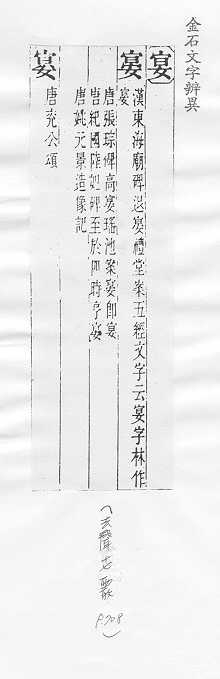 金石文字辨異
宴
宴 漢東海廟碑退宴禮堂案五經文字云宴字林作
宴
唐張琮碑高宴瑤池案宴即宴
唐紀國陸妃碑至於四時享宴
唐姚元景造像記
宴 唐兖公頌
(去聲 霰 P.708)